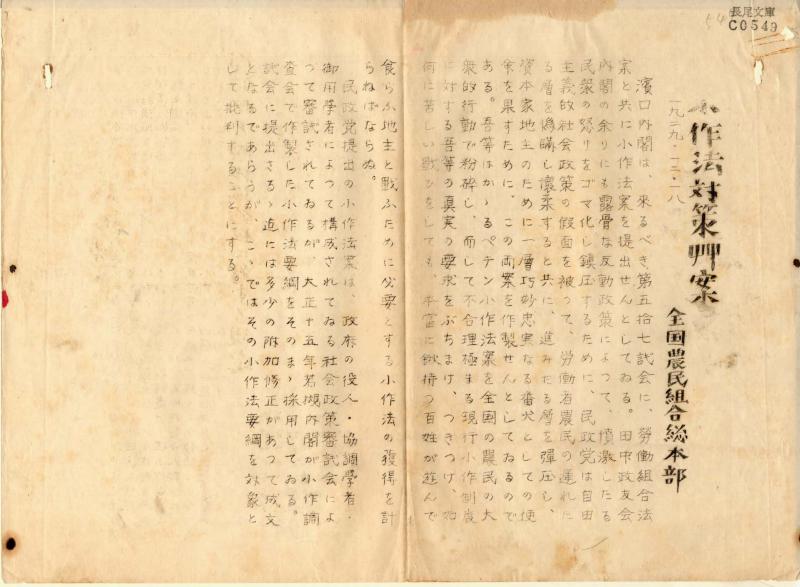 長尾文庫
C0549
54
小作法対策草案
一九二九・一二・一八
全国農民組合総本部
濱口内閣は、来るべき第五拾七議会に、労働組合法
案と共に小作法案を提出せんとしてゐる。田中政友会
内閣の余りにも露骨な反動政策によつて、憤激したる
民衆の怒りをゴマ化し鎮圧するために、民政党は自由
主義的社会政策の仮面を被つて、労働者農民の遅れた
る層を偽瞞し懐柔すると共に、進みたる層を弾圧し、
資本家地主のために一層巧妙忠実なる番犬としての使
命を果すために、この両案を作製せんとしてゐるので
ある。吾等はかゝるペテン小作法案を全国の農民の大
衆的行動で粉砕し、而して不合理極まる現行小作制度
に対する吾等の真実の要求をぶちまけ、つきつけ、如
何に苦しい戦ひをしても本當に鍬持つ百姓が遊んで
食らふ地主と戦ふために必要とする小作法の獲得を計
らねばならぬ。
民政党提出の小作法案は、政府の役人・協調学者・
御用学者によつて構成されてゐる社会政策審議会によ
つて審議されてゐるが、大正十五年若槻内閣が小作調
査会で作製した小作法要綱をそのまゝ採用してゐる。
議会に提出さるゝ迄には多少の附加修正があつて成文
となるであらうが、こゝではその小作法要綱を対象と
して批判することにする。